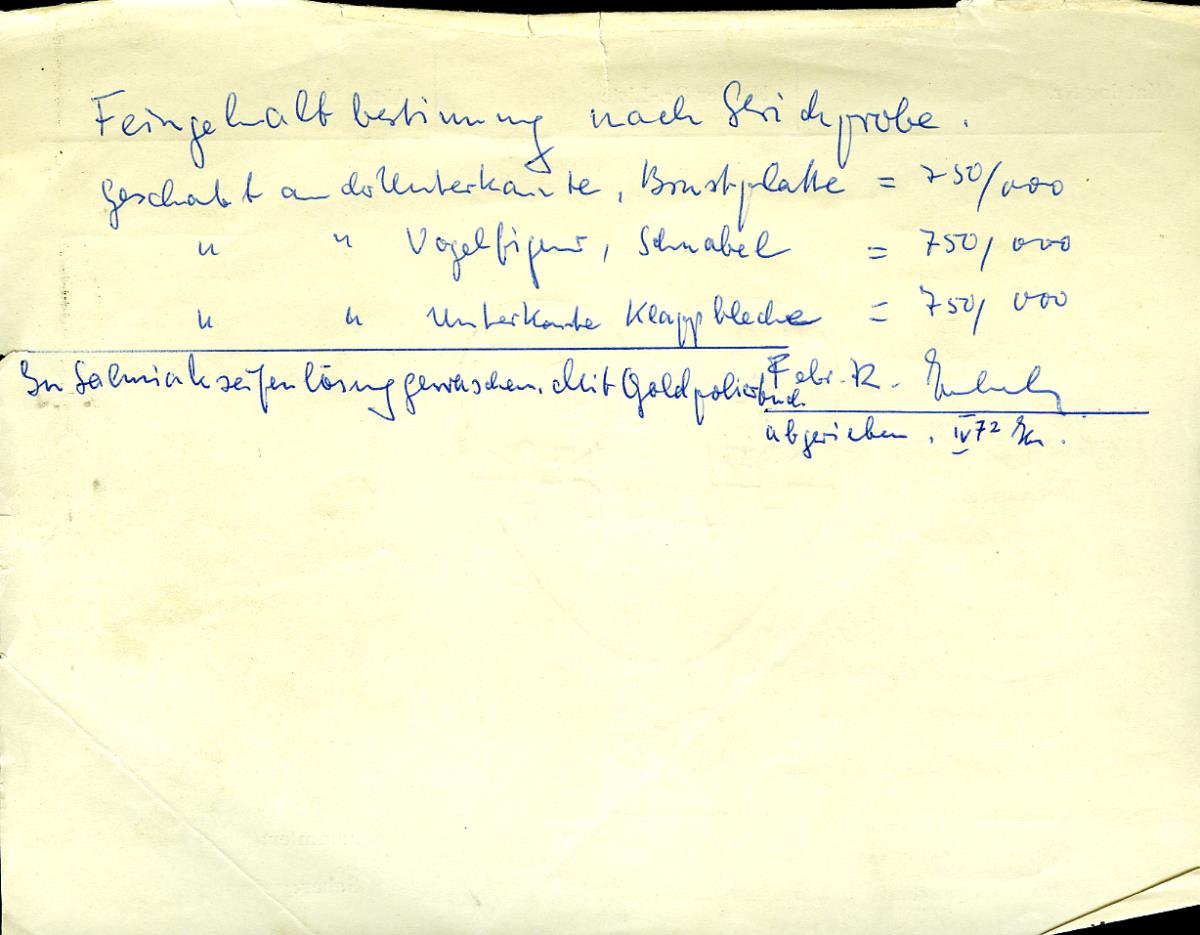 Feingehaltbestimmung nach Strichprobe.
Geschabt an der Unterkante, Brustplatte = 750/000
" " Vogelfigur, Schnabel = 750/000
" " Unterkante Klappbleche = 750/000
In Salmiakseifenlösung gewaschen. Mit Goldpoliertuch
Febr. 72.
abgerieben. IV 72